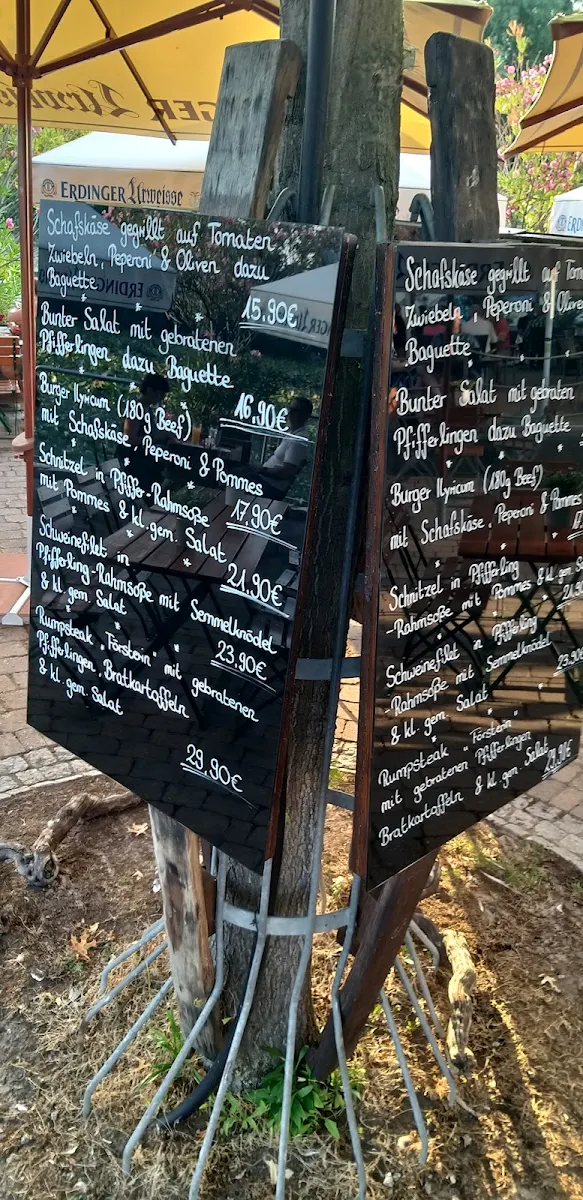 ERDINGER Urweisse
Schafskäse gegrillt auf Tomaten
Zwiebeln, Peperoni & Oliven dazu
Baguette
15,90€
Bunter Salat mit gebratenen
Pfifferlingen dazu Baguette
16,90€
Burger Ilyricum (180g Beef)
mit Schafskäse, Peperoni & Pommes
17,90€
Schnitzel in Pfiffer-Rahmsoße
mit Pommes & kl. gem. Salat
21,90€
Schweinefilet in
Pfifferling-Rahmsoße mit Semmelknödel
& kl. gem. Salat
23,90€
Rumpsteak „Förstein" mit gebratenen
Pfifferlingen, Bratkartoffeln
& kl. gem. Salat
29,90€
Schafskäse gegrillt auf
Zwiebeln, Peperoni & Oliven
Baguette
Bunter Salat mit gebraten
Pfifferlingen dazu Baguette
Burger Ilyricum (180g Beef)
mit Schafskäse, Peperoni & Pommes
Schnitzel in Pfifferling
-Rahmsoße mit Pommes & kl.
Schweinefilet in Pfifferling
Rahmsoße mit Semmelknödel
& kl. gem. Salat
23,90
Rumpsteak „Förstein"
mit gebratenen Pfifferlingen
Bratkartoffeln & kl. gem. Salat
29,90€